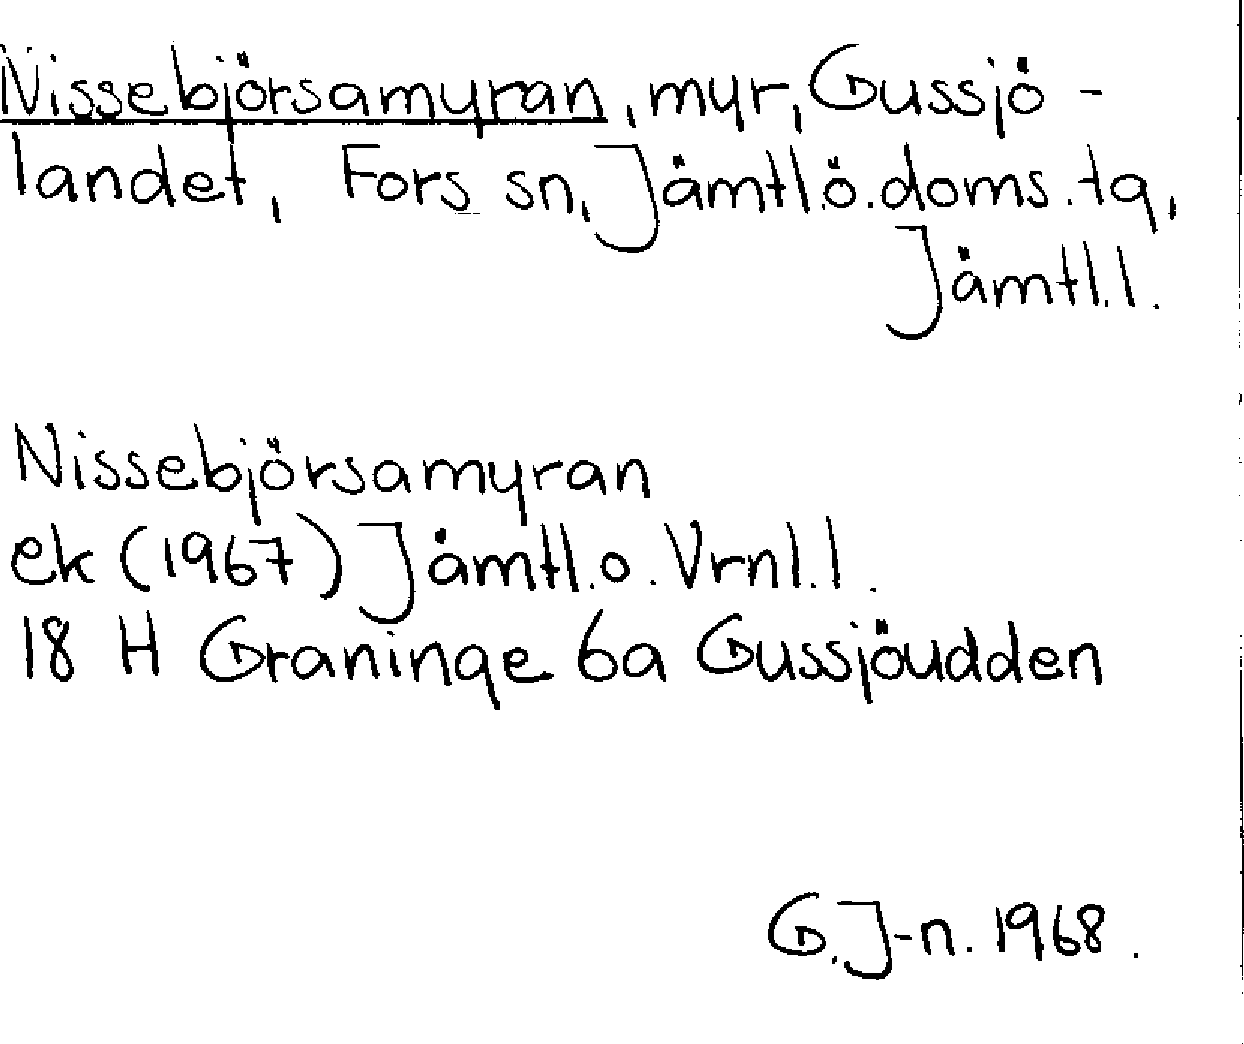 Nissebjörsamyran, myr, Gussjö-
landet, Fors sn, Jämtl.ö.doms.tg,
Jämtl.l.
Nissebjörsamyran
ek (1967) Jämtl.o.Vrnl.l.
18 H Graninge 6a Gussjöudden
G.J-n. 1968.